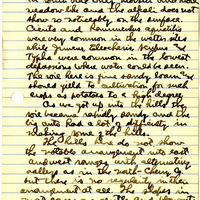 meadow-like and the alkali does not
show so noticeably on the surface.
Cicuta and Ranunculus aquaticus
were very common in the watery sites
while Juncus, Eleocharis, Scirpus and
Typha were common in the lowest
depressions where water could be seen.
The soil here is fine sandy loam and
should yield to cultivation for such
crops as potatoes to a high degree.
As we got up into the hills the
soil became rapidly sandy and the
big auto had a lot of difficulty in
making some of the hills.
The hills here do not show
the notable arrangement into east
and west ranges with alternating
valleys as in the north Cherry Co.
but there is no regularity of their
arrangement at all. The slopes in